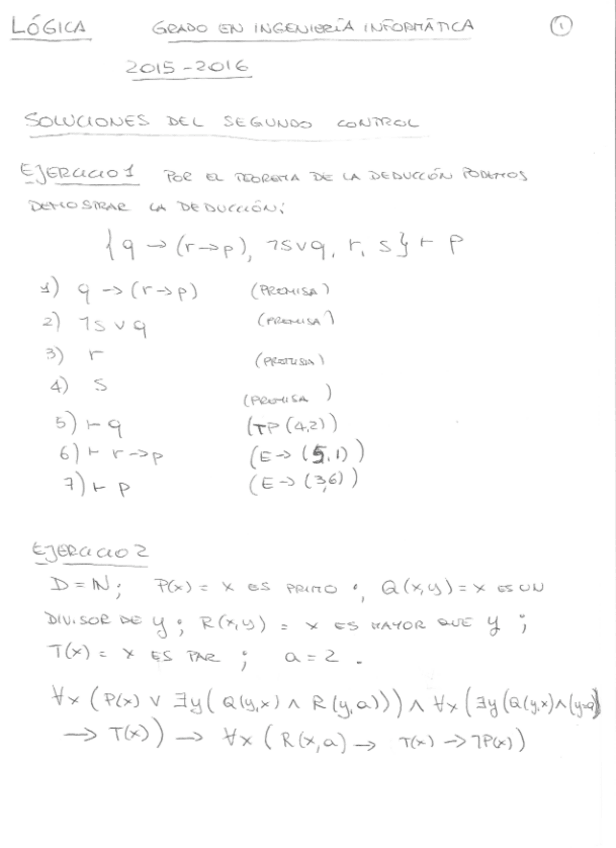 LÓGICA GRADO EN INGENIERÍA INFORMÁTICA 1
2015-2016
SOLUCIONES DEL SEGUNDO CONTROL
EJERCICIO 1 POR EL TEOREMA DE LA DEDUCCIÓN PODEMOS
DEMOSTRAR LA DEDUCCIÓN:
{q → (r→p), ¬s∨q, r, s} ⊢ p
1) q → (r→p) (PREMISA)
2) ¬s ∨ q (PREMISA)
3) r (PREMISA)
4) s (PREMISA)
5) ⊢ q (TP (4,2))
6) ⊢ r→p (E→ (5,1))
7) ⊢ p (E→ (3,6))
EJERCICIO 2
D = ℕ; P(x) = x ES PRIMO; Q(x,y) = x ES UN
DIVISOR DE y; R(x,y) = x ES MAYOR QUE y;
T(x) = x ES PAR; a = 2.
∀x (P(x) ∨ ∃y (Q(y,x) ∧ R(y,a))) ∧ ∀x (∃y (Q(y,x) ∧ (y=a)
→ T(x)) → ∀x (R(x,a) → T(x) → ¬P(x))